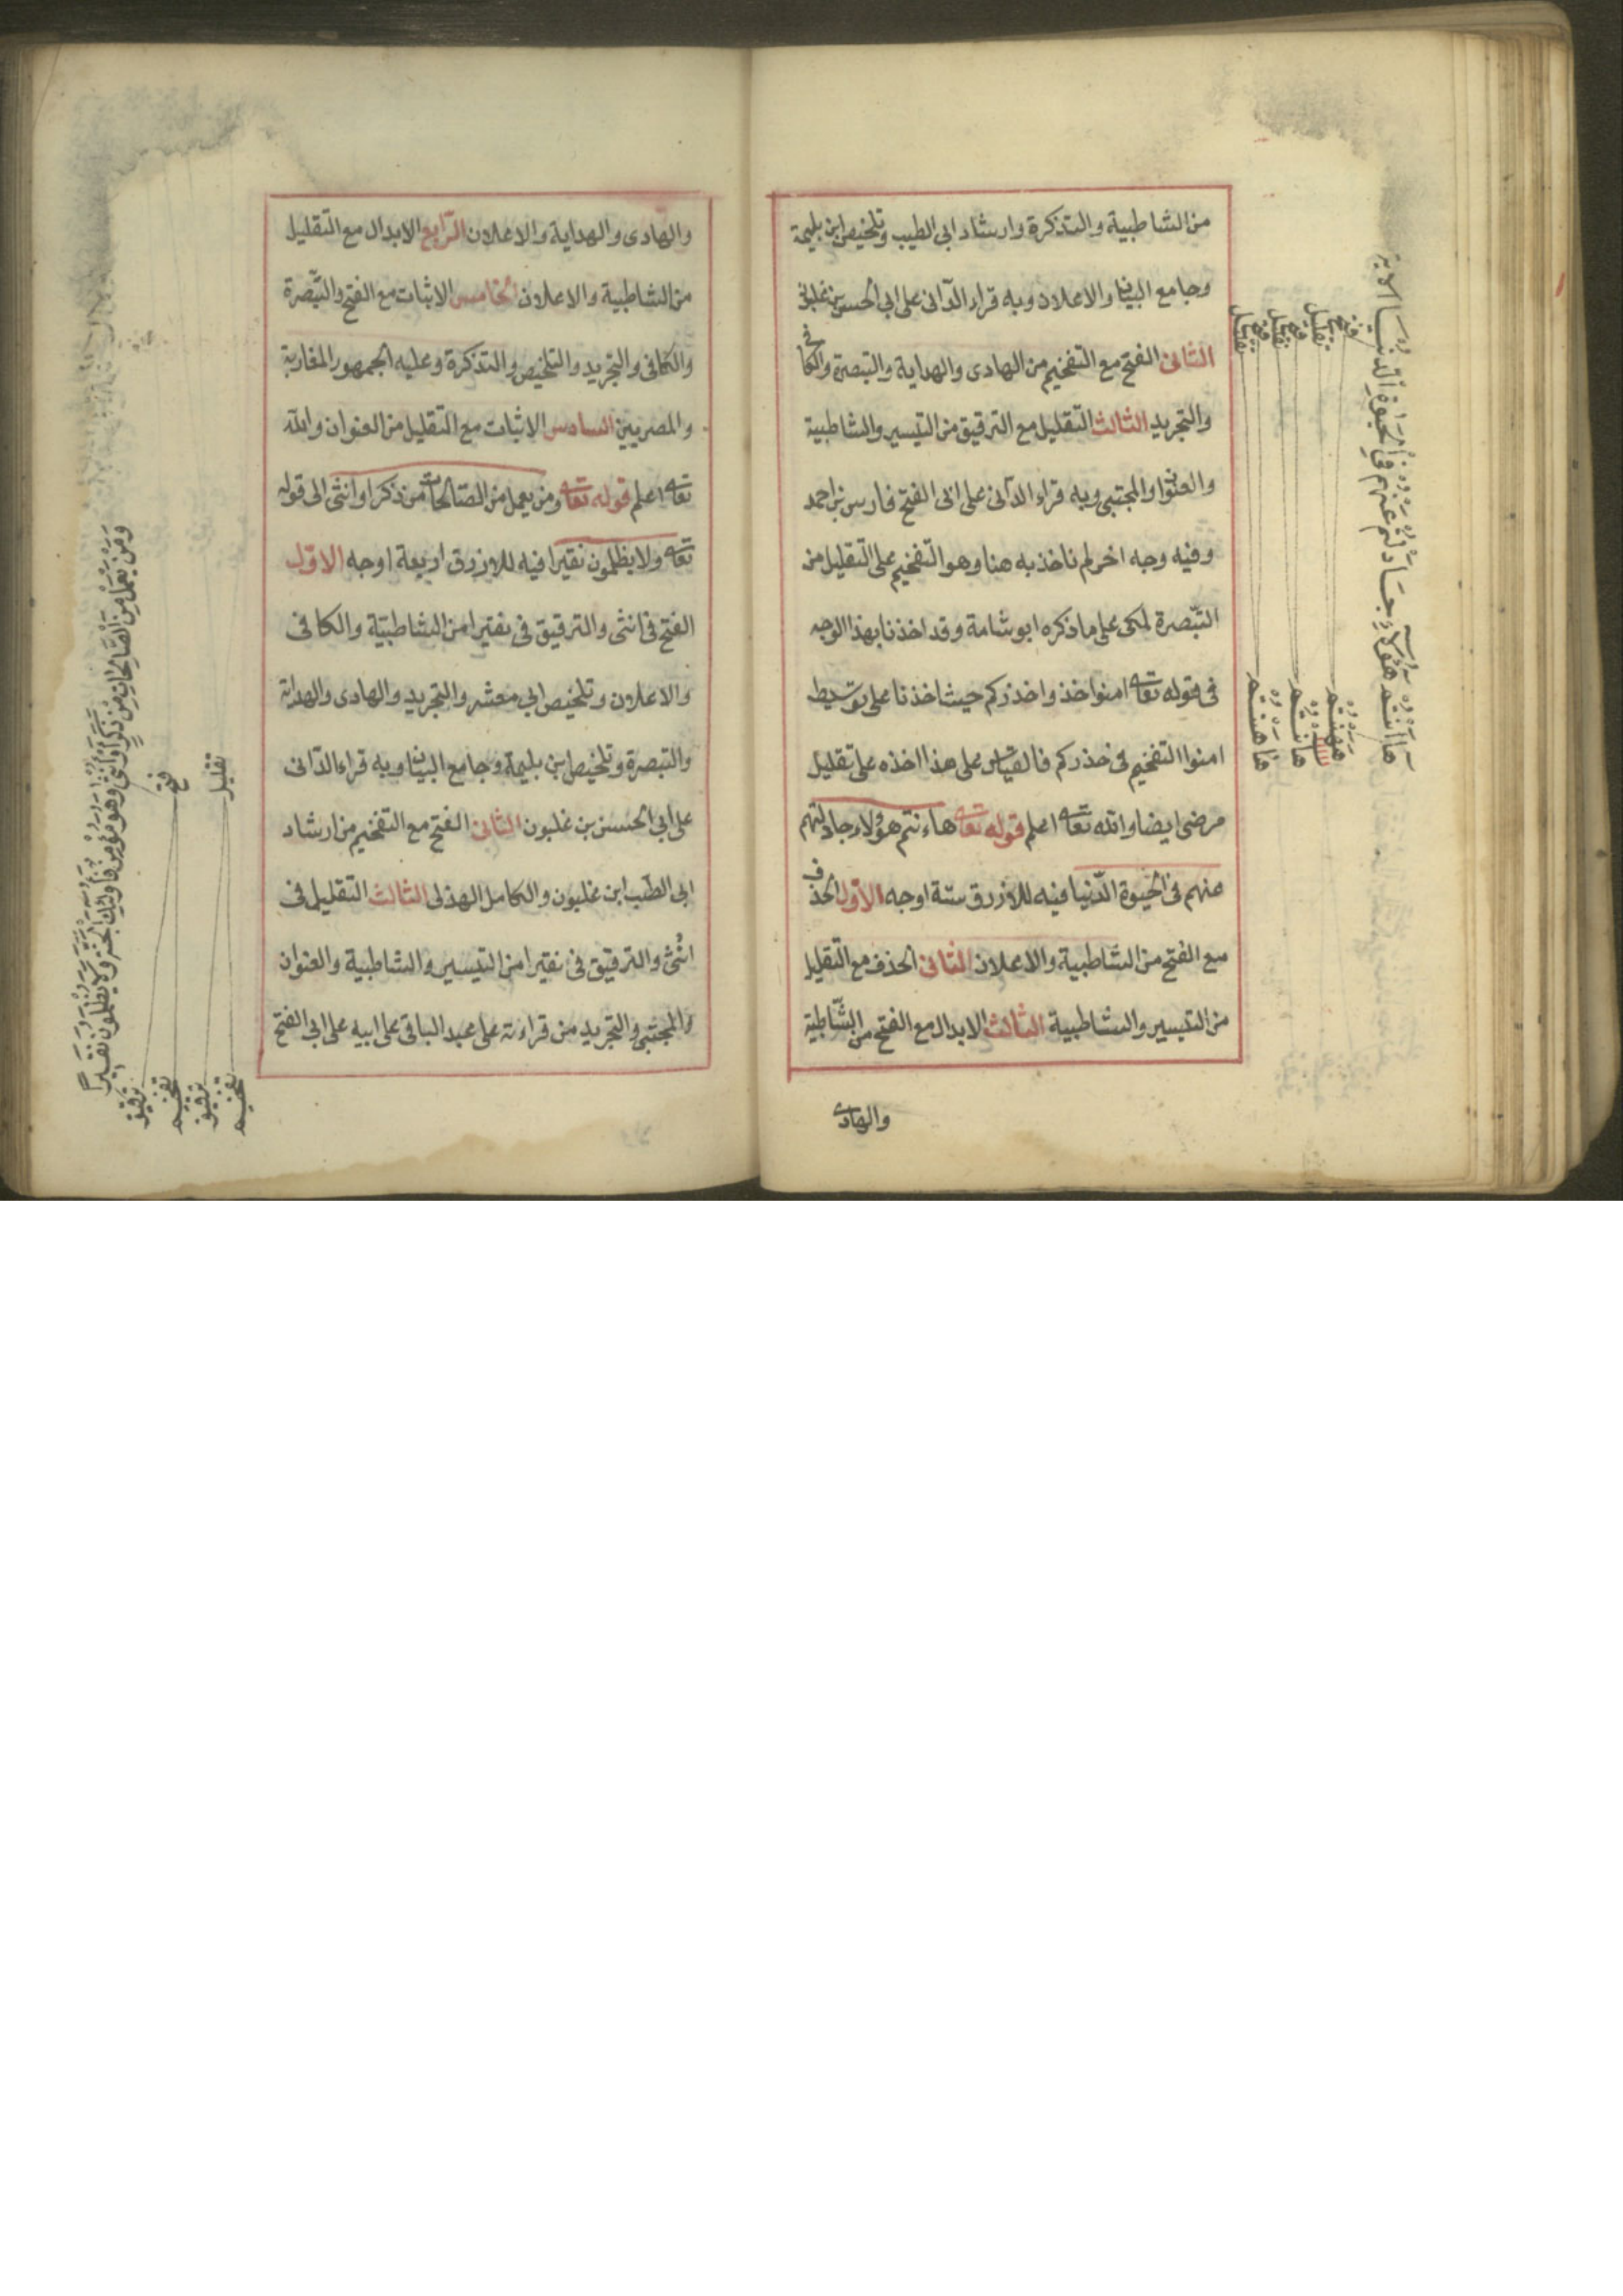 من الشاطبية والتذكرة وارشاد ابى الطيب وتلخيص ابن بليمة
وجامع البيان والاعلان وبه قراء الدآنى على ابى الحسن بن غلبون
الثانى الفتح مع التفخيم من الهادى والهداية والتبصرة والكافى
والتجريد الثالث التقليل مع الترقيق من التيسير والشاطبية
والعنوان والمجتبى وبه قراء الدآنى على ابى الفتح فارس بن احمد
وفيه وجه اخر لم ناخذ به هنا وهو التفخيم على التقليل من
التبصرة لمكى على ما ذكره ابو شامة وقد اخذنا بهذا الوجه
فى قوله تعا امنوا خذوا حذركم حيث اخذنا على توسيط
امنوا التفخيم فى حذركم فالقياس على هذا اخذه على تقليل
مرضى ايضا والله تعا اعلم قوله تعا هاءنتم هؤلاء جادلتم
عنهم فى الحيوة الدنيا فيه للازرق ستة اوجه الاول الحذف
مع الفتح من الشاطبية والاعلان الثانى الحذف مع التقليل
من التيسير والشاطبية الثالث الابدال مع الفتح من الشاطبية
والهادى
هاانتم هؤلاء جادلتم عنهم فى الحيوة الدنيا الاية
فتح
تقليل
فتح
تقليل
فتح
تقليل
هانتم
هاانتم
والهادى والهداية والاعلان الرابع الابدال مع التقليل
من الشاطبية والاعلان الخامس الاثبات مع الفتح والتبصرة
والكافى والتجريد والتلخيص والتذكرة وعليه الجمهور المغاربة
والمصريين السادس الاثبات مع التقليل من العنوان والله
تعا اعلم قوله تعا ومن يعمل من الصالحات من ذكر او انثى الى قوله
تعا ولا يظلمون نقيرا فيه للازرق اربعة اوجه الاول
الفتح فى انثى والترقيق فى نقيرا من الشاطبية والكافى
والاعلان وتلخيص ابى معشر والتجريد والهادى والهداية
والتبصرة وتلخيص بن بليمة وجامع البيان وبه قراء الدآنى
على ابى الحسن بن غلبون الثانى الفتح مع التفخيم من ارشاد
ابى الطيب ابن غلبون والكامل الهذلى الثالث التقليل فى
انثى والترقيق فى نقيرا من التيسير والشاطبية والعنوان
والمجتبى والتجريد من قراءته على عبد الباقى على ابيه على ابى الفتح
ومن يعمل من الصالحات من ذكر او انثى وهو مؤمن فاولئك يدخلون الجنة ولا يظلمون نقيرا
فتح
تقليل
ترقيق
تفخيم
ترقيق
تفخيم